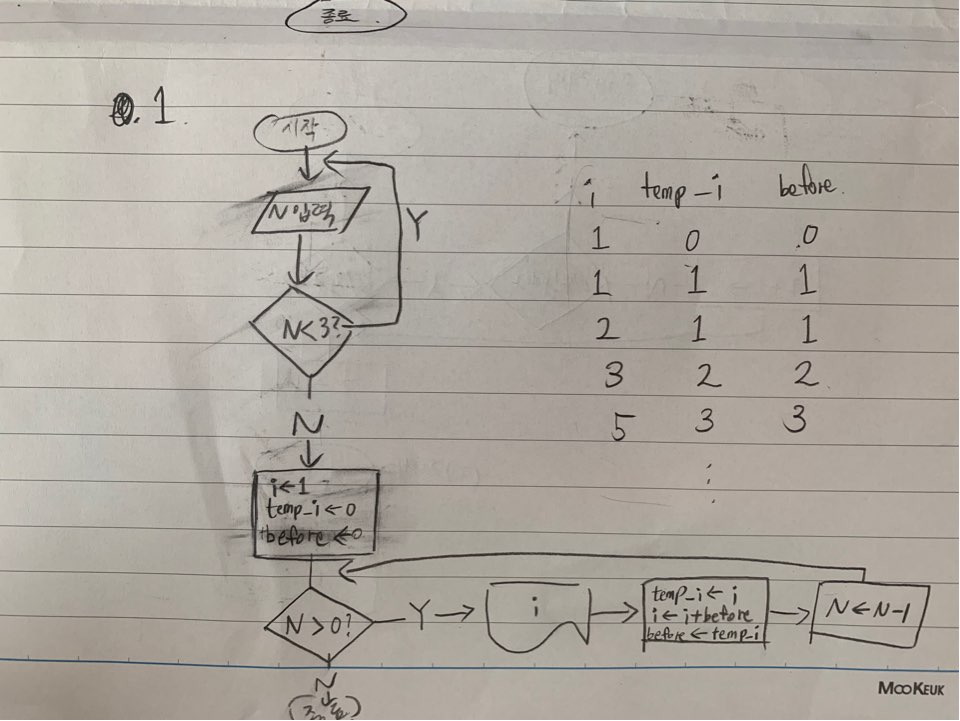 종료
Q. 1
시작
N입력
Y
N<3?
N
i←1
temp_i←0
before←0
N>0?
Y
i
temp_i←i
i←i+before
before←temp_i
N←N-1
N
종료
i temp_i before.
1 0 0
1 1 1
2 1 1
3 2 2
5 3 3
⋮
MOOKEUK